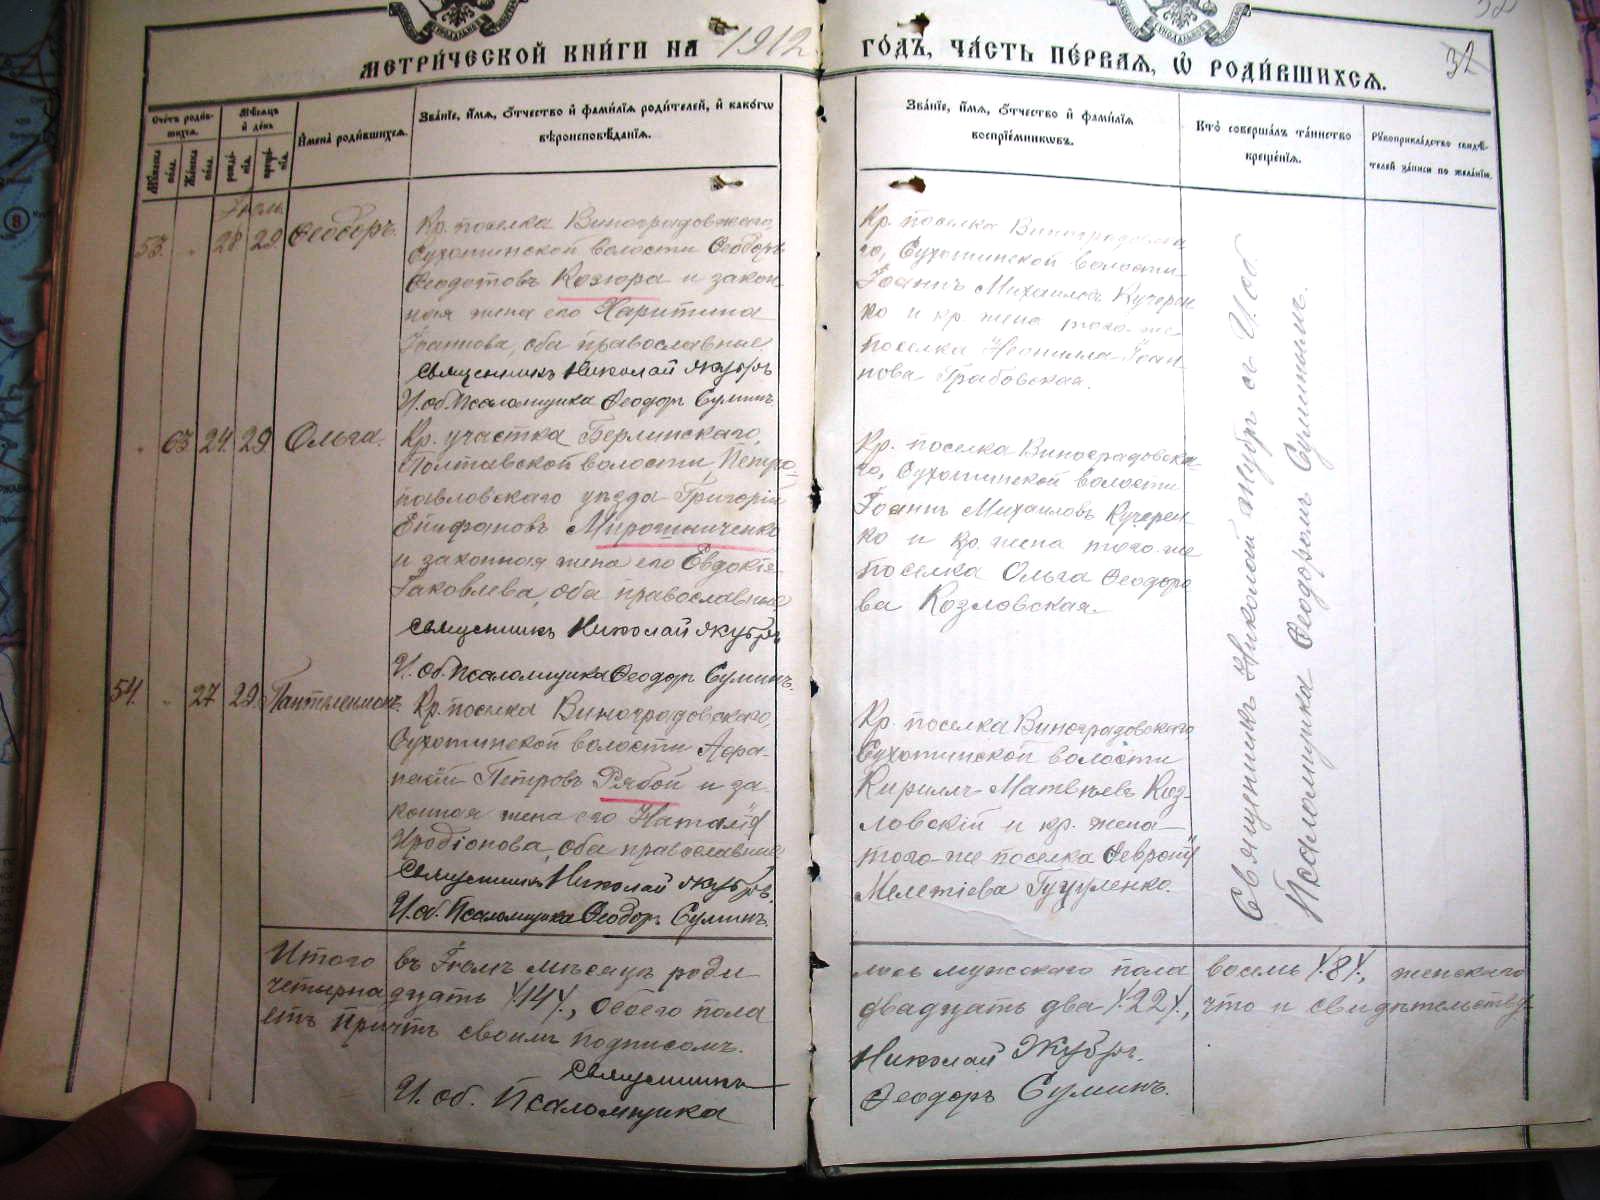 МЕТРИ́ЧЕСКОЙ КНИ́ГИ НА 1912 ГО́ДЪ, ЧА́СТЬ ПЕ́РВАЯ, Ѡ РОДИ́ВШИХСѦ.
32
Сче́тъ роди́в-
шихсѧ.
Мꙋ́жеска по́ла.
Же́нска по́ла.
Мѣ́сѧцъ
и де́нь
рожде́нїѧ.
креще́нїѧ.
Имена̀ роди́вшихсѧ.
Зва́нїе, и́мѧ, ѻ́тчество и фами́лїѧ роди́телей, и како́гѡ
вѣроисповѣ́данїѧ.
Зва́нїе, и́мѧ, ѻ́тчество и фами́лїѧ
воспрїе́мникѡвъ.
Кто̀ соверша́лъ та́инство
креще́нїѧ.
Рꙋкоприкла́дство свидѣ́-
телей за́писи по жела́нїю.
Іюль.
53. " 28 29 Ѳеодоръ.
Кр. поселка Виноградовскаго,
Сухотинской волости Ѳеодоръ
Ѳеодотовъ Козюра и закон-
ная жена его Харитина
Іоаннова, оба православные.
Священникъ Николай Якубръ
И. об. Псаломщика Ѳеодоръ Суминъ.
Кр. поселка Виноградовска-
го, Сухотинской волости
Іоаннъ Михаиловъ Кучерен-
ко и кр. жена того-же
поселка Неонилла Іоан-
нова Грабовская.
" 63 24 29 Ольга.
Кр. участка Берлинскаго,
Полтавской волости, Петро-
павловскаго уѣзда Григорій
Епифановъ Мирошниченко
и законная жена его Евдокія
Іаковлева, оба православные
Священникъ Николай Якубръ
И. об. Псаломщика Ѳеодоръ Суминъ.
Кр. поселка Виноградовска-
го, Сухотинской волости
Іоаннъ Михаиловъ Кучерен-
ко и кр. жена того-же
поселка Ольга Ѳеодоро-
ва Козловская.
54. " 27 29 Пантелеимонъ.
Кр. поселка Виноградовскаго,
Сухотинской волости Аѳа-
насій Петровъ Рябой и за-
конная жена его Наталія
Иродіонова, оба православные
Священникъ Николай Якубръ.
И. об. Псаломщика Ѳеодоръ Суминъ.
Кр. поселка Виноградовскаго
Сухотинской волости
Кириллъ Матвѣевъ Коз-
ловскій и кр. жена
того-же поселка Феврон
Мелетіева
Священникъ Николай Якубръ съ И. об.
Псаломщика Ѳеодоромъ Суминымъ.
Итого въ Іюлѣ мѣсяцѣ роди- лось мужскаго пола восемь /8/, женскаго
четырнадцать /14/, обоего пола двадцать два /22/, что и свидѣтельству-
етъ причтъ своимъ подписомъ.
Священникъ Николай Якубръ.
И. об. Псаломщика Ѳеодоръ Суминъ.